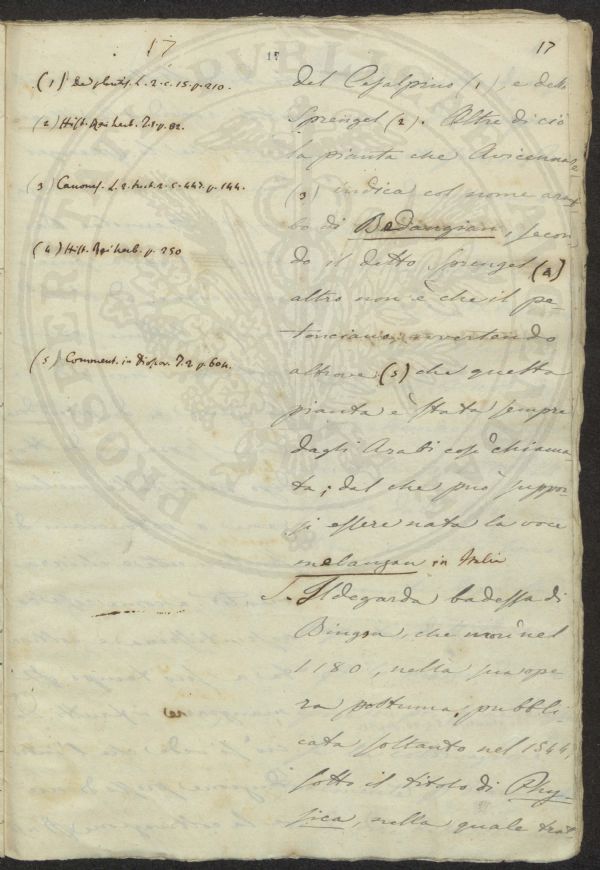 17
17
17
(1) de plantis. L. 2. c. 15. p. 210.
(2) Hist. Rei herb. T. 1. p. 82.
(3) L. 2. 2. c. 447. p. 144.
(4) Hist. Rei herb. p. 250
(5) Comment. in Diosco. T. 2 p. 604.
del Cesalpino (1), e dello
Sprengel (2). Oltre di ciò
la pianta che Avicenna
(3) indica col nome ara-
bo di Bedangian, secon-
do il detto Sprengel (4)
altro non è che il pe-
tonciano avvertendo
altrove (5) che questa
pianta è stata sempre
dagli Arabi così chiama-
ta; dal che può suppor-
si essere nata la voce
melanzan in Italia
S. Ildegarda badessa di
Bingsa, che morì nel
1180, nella sua ope-
ra postuma, pubbli-
cata soltanto nel 1544,
sotto il titolo di Phy-
sica, nella quale trat